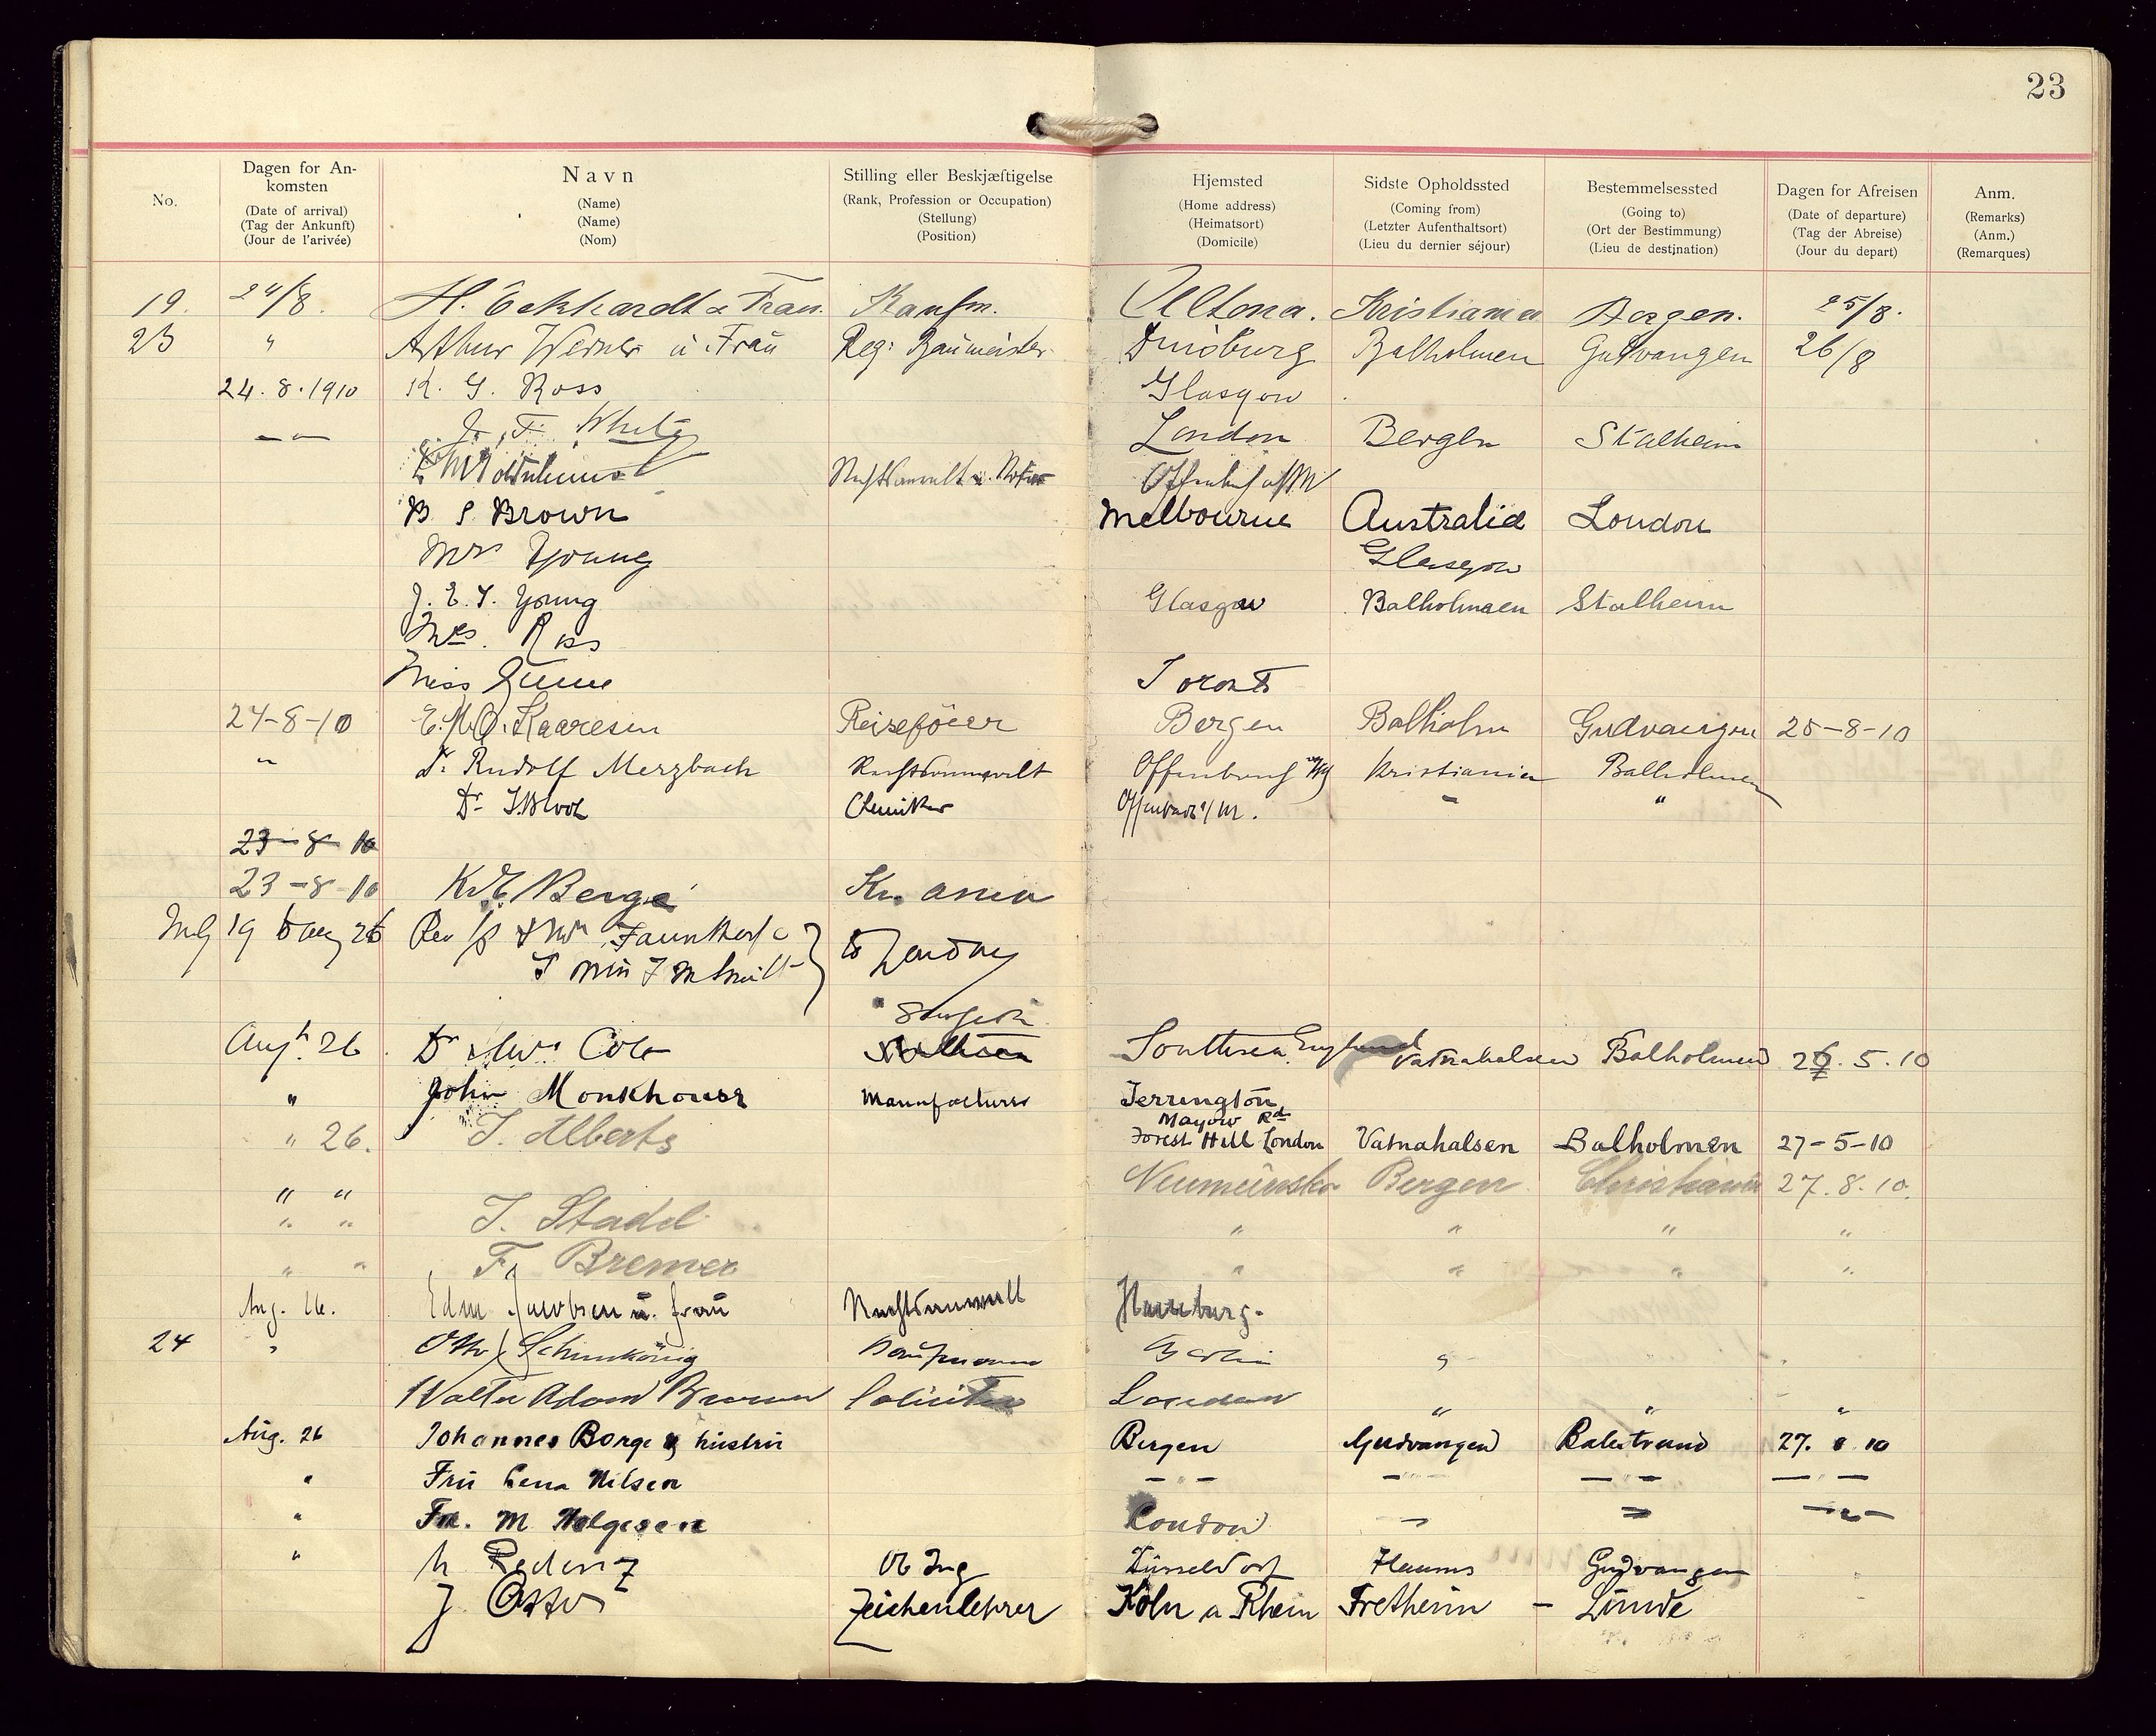 23
No.
Dagen for An-
komsten
(Date of arrival)
(Tag der Ankunft)
(Jour de l'arivée)
Navn
(Name)
(Name)
(Nom)
Stilling eller Beskjæftigelse
(Rank, Profession or Occupation)
(Stellung)
(Position)
Hjemsted
(Home address)
(Heimatsort)
(Domicile)
Sidste Opholdssted
(Coming from)
(Letzter Aufenthaltsort)
(Lieu du dernier séjour)
Bestemmelsessted
(Going to)
(Ort der Bestimmung)
(Lieu de destination)
Dagen for Afreisen
(Date of departure)
(Tag der Abreise)
(Jour du depart)
Anm.
(Remarks)
(Anm.)
(Remarques)
19. 24/8. H. Eckhardt & Frau. Kaufm. Altona. Kristiania Bergen. 25/8.
23 " Arthur Werner u. Frau Reg: Baumeister Duisburg Balholmen Gudvangen 26/8
24.8.1910 R. G. Ross Glasgow
— " — J. F. White London Bergen Stalheim
Rechtsanwalt u. Notar Offenbach a/M
B. S. Brown Melbourne Australia London
Mrs Young Glasgow
J. E. Y. Young Glasgow Balholmen Stalheim
Mrs. Ross
Miss Toronto
24-8-10 Kaaresen Reiseförer Bergen Balholm Gudvangen 25-8-10
" Dr Rudolf Merzbach Rechtsanwalt Kristiania Balholmen
Dr. J. Bloch Chemiker Offenbach a/M. " "
23-8 10
23-8-10 Berge Kr. ania
19 26 Rev
Surgeon
Augt. 26 Dr & Mrs Cole Southsea England Vatnahalsen Balholmen 27.5.10
" John Monkhouse Manufacturer Terrington
Mayow Rd
" 26. J. Alberts Forest Hill London Vatnahalsen Balholmen 27-5-10
" " Neumünster Bergen Christiania 27.8.10.
" " J. Stadel " " " "
" " F. Bremer " " " "
Aug. 26. Edm. Jacobsen u. Frau Rechtsanwalt Hamburg.
24 " Otto Schinkönig Kaufmann Berlin "
Walter Adam Brown Solicitor London " " "
Aug. 26 Johannes Borge og hustru Bergen Gudvangen Balestrand 27. 8 10
" Fru Lena Nilsen — " — — " — — " — — " —
" Frk. M Helgesen London — " —
" Redenz Ob Ing Düsseldorf Flaams Gudvangen
J. Zeichenlehrer Köln a Rhein Fretheim —